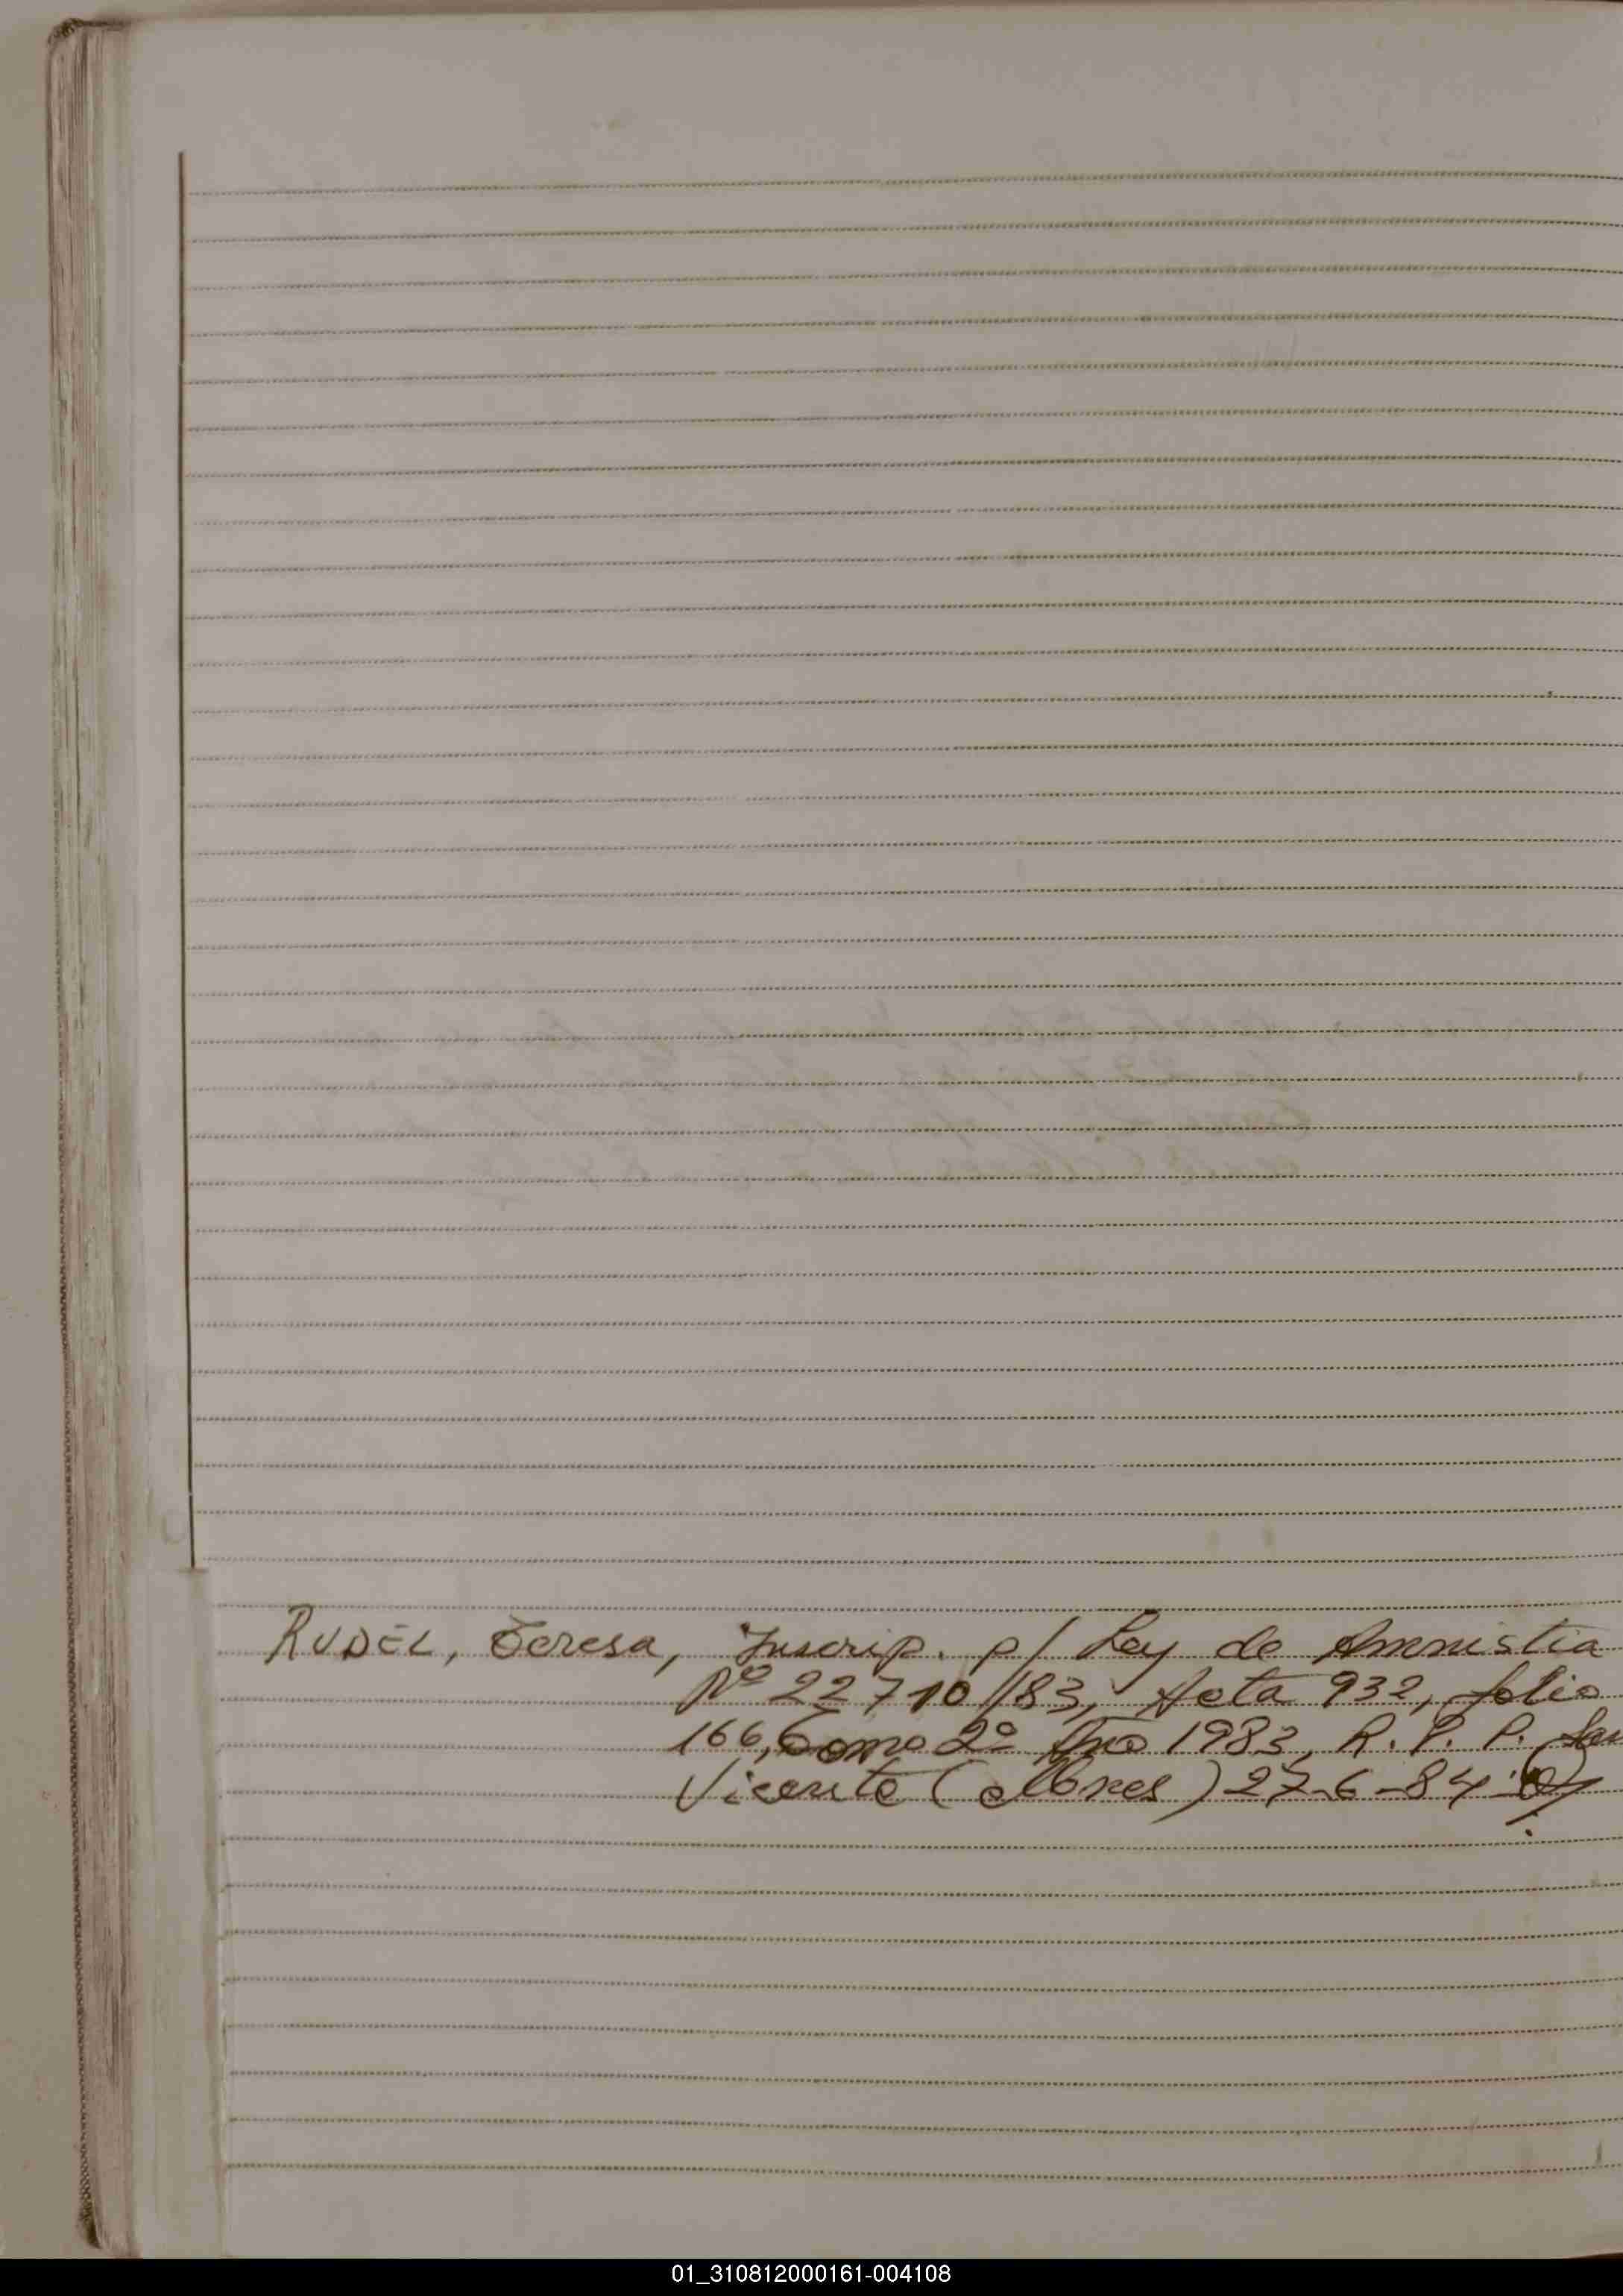 RUDEL, Teresa, Inscrip. p/ Ley de Amnistia
Nº 22710/83, Acta 932, folio
166, Tomo 2º Año 1983, R.P.P. San
Vicente (Mnes) 27-6-84
01_310812000161-004108